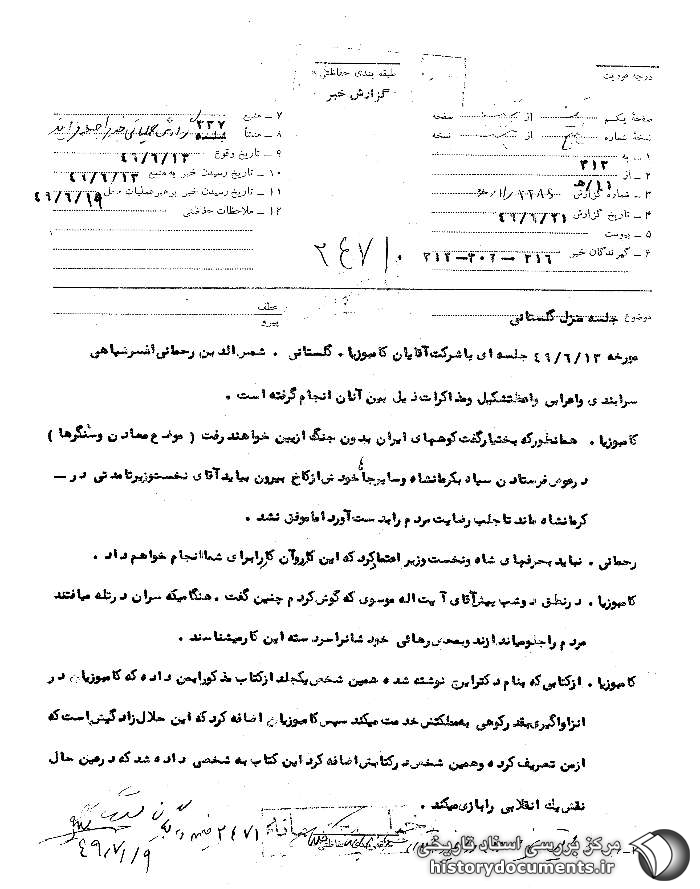 درجه فوریت
طبقه بندی حفاظتی
گزارش خبر
صفحه یکم از صفحه
نسخه شماره از نسخه
۱ ـ به ۳۱۲
۲ ـ از ۱۱/ه
۳ ـ شماره گزارش
۴ ـ تاریخ گزارش ۴۹/۶/۲۱
۵ ـ پیوست
۶ ـ گیرندگان خبر ۳۱۶ – ۳۰۲ – ۳۱۲
۷ ـ منبع ۲۳۷
۸ ـ منشأ
۹ ـ تاریخ وقوع ۴۹/۶/۱۳
۱۰ ـ تاریخ رسیدن خبر به منبع ۴۹/۶/۱۳
۱۱ ـ تاریخ رسیدن خبر برهبر عملیات محل ۴۹/۶/۱۹
۱۲ ـ ملاحظات حفاظتی
موضوع جلسه منزل گلستانی
عطف
پیرو
مورخه ۴۹/۶/۱۳ جلسه ای با شرکت آقایان کامبوزیا ، گلستانی ، شمس الدین رحمانی افسر سپاهی
سرابندی واعرابی واعظ تشکیل ومذاکرات ذیل بین آنان انجام گرفته است .
کامبوزیا . همانطور که بختیار گفت کوههای ایران بدون جنگ ازبین خواهند رفت ( موضوع معادن وسنگرها )
درعوض فرستادن سپاه بکرمانشاه وسایر جاها خودش ازکاخ بیرون بیاید آقای نخست وزیر تا مدتی در ـ
کرمانشاه ماند تا جلب رضایت مردم را بدست آورد اما موفق نشد .
رحمانی . نباید بحرفهای شاه ونخست وزیر اعتماد کرد که این کار وآن کار را برای شما انجام خواهم داد .
کامبوزیا . درنطق دوشب پیش آقای آیت اله موسوی که گوش کردم چنین گفت . هنگامیکه سران درتله میافتند
مردم را جلو میاندازند وبمحض رهائی خودشان را سردسته این کار میشناسند .
کامبوزیا . ازکتابی که بنام دکتر ایرج نوشته شده همین شخص یکجلد ازکتاب مذکور ایمن داده که کامبوزیا در
انزوا گیری بقدر کوهی بمملکتش خدمت میکند سپس کامبوزیا اضافه کرد که این حلال زادگیش است که
ازمن تعریف کرده وهمین شخص درکتابش اضافه کرد این کتاب به شخصی داده شد که درعین حال
نقش یک انقلابی را بازی میکند .
۲۴۷۱
۴۹/۷/۹
مرکز بررسی اسناد تاریخی
historydocuments.ir